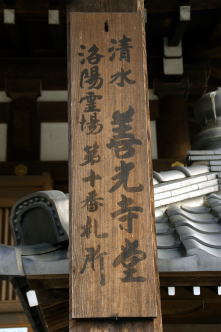 清水
善光寺堂
洛陽霊場第十番札所